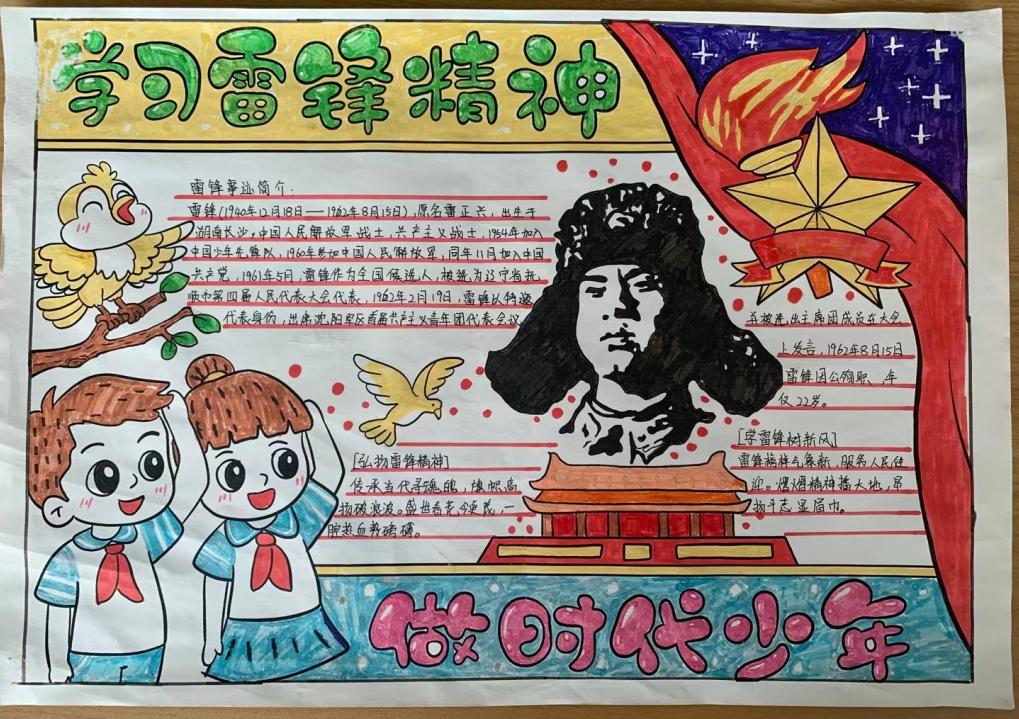 学习雷锋精神
雷锋事迹简介：
雷锋(1940年12月18日——1962年8月15日),原名雷正兴，出生于
湖南长沙，中国人民解放军战士，共产主义战士，1954年加入
中国少年先锋队，1960年参加中国人民解放军，同年11月加入中国
共产党，1961年5月，雷锋作为全国候选人，被选为辽宁省抚
顺市第四届人民代表大会代表，1962年2月19日，雷锋以特邀
代表身份，出席沈阳军区首届共产主义青年团代表会议
并被选出主席团成员在大会
上发言，1962年8月15日
雷锋因公殉职、年
仅22岁。
[弘扬雷锋精神]
传承当代
扬破浪波。盛世春花今更茂，一
腔热血势磅礴。
[学雷锋树新风]
雷锋榜样气象新，服务人民任
迎。熠熠精神播大地，昂
扬斗志显眉巾。
做时代少年